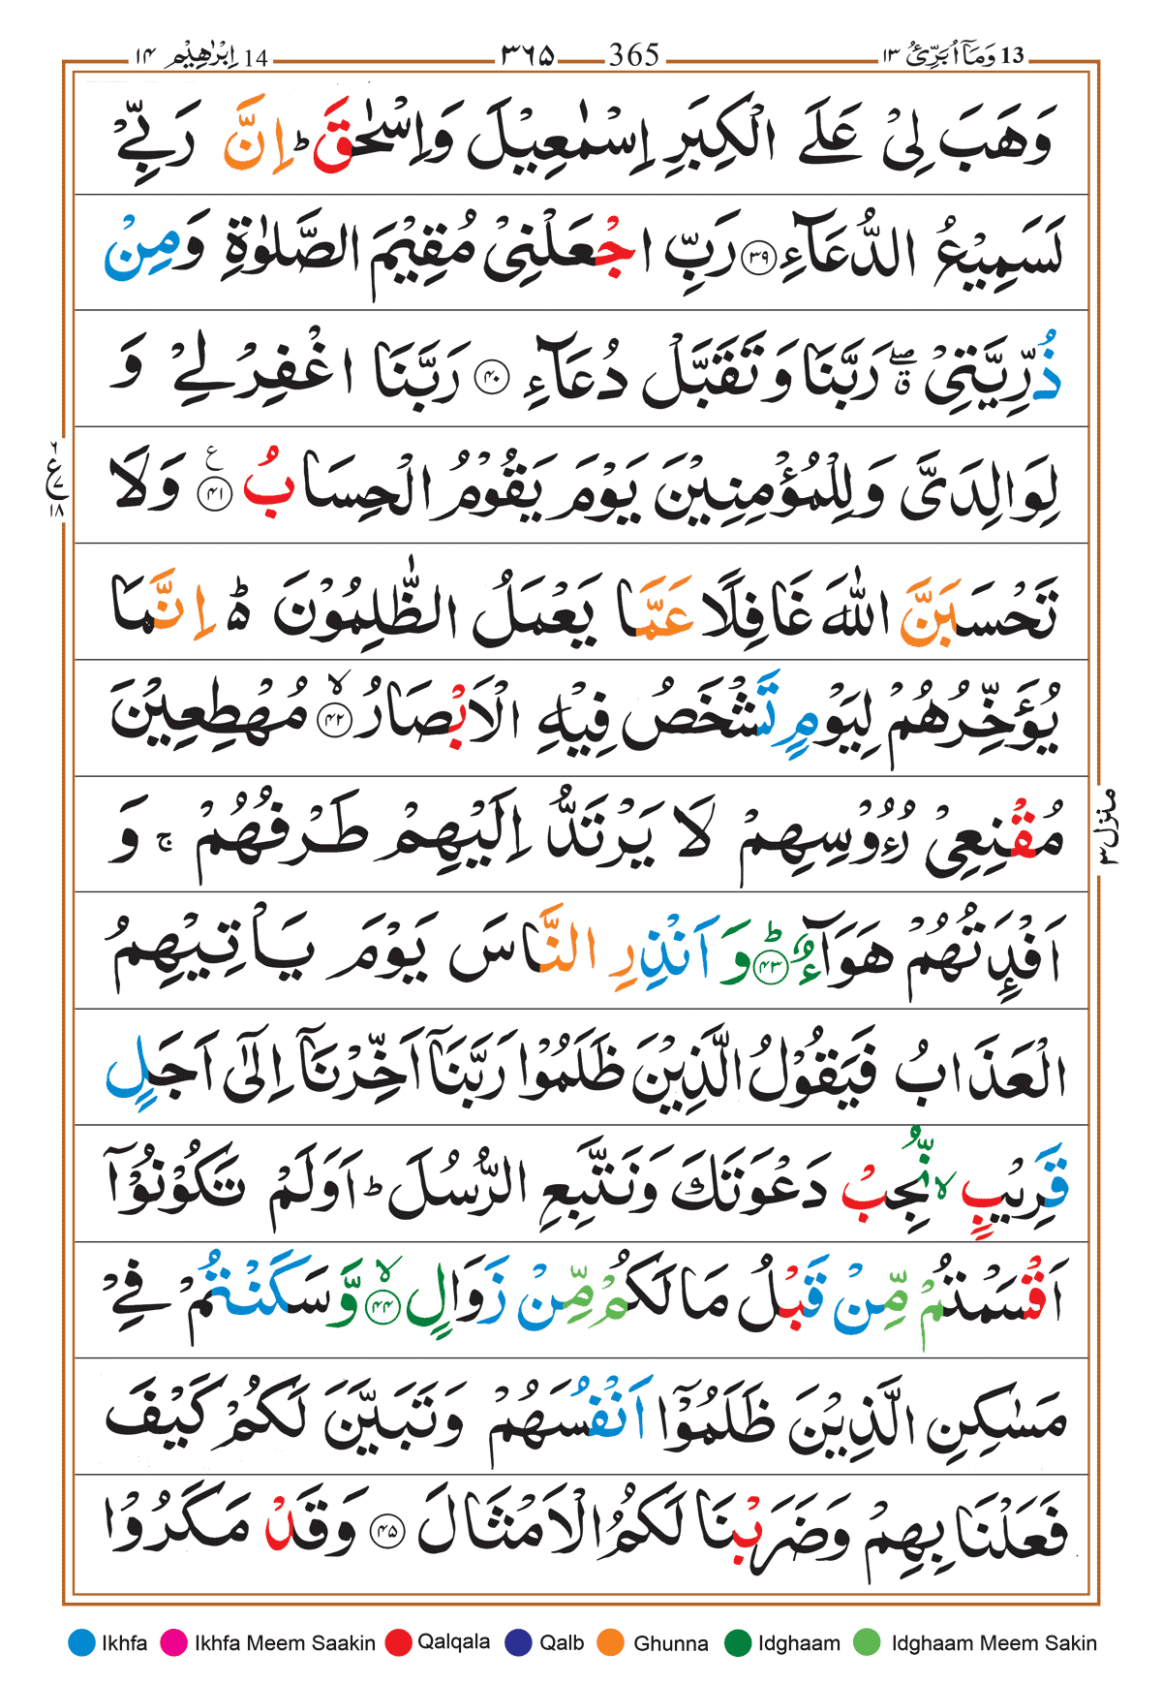 13 وَمَآ اُبَرِّئُ ۱۳ 365 ۳۶۵ 14 اِبْرٰهِيْم ۱۴
وَهَبَ لِىْ عَلَى الْكِبَرِ اِسْمٰعِيْلَ وَاِسْحٰقَ ؕ اِنَّ رَبِّىْ
لَسَمِيْعُ الدُّعَآءِ ۳۹ رَبِّ اجْعَلْنِىْ مُقِيْمَ الصَّلٰوةِ وَمِنْ
ذُرِّيَّتِىْ ۖق رَبَّنَا وَتَقَبَّلْ دُعَآءِ ۴۰ رَبَّنَا اغْفِرْ لِىْ وَ
لِوَالِدَىَّ وَلِلْمُؤْمِنِيْنَ يَوْمَ يَقُوْمُ الْحِسَابُ ۴۱ ع وَلَا
تَحْسَبَنَّ اللّٰهَ غَافِلًا عَمَّا يَعْمَلُ الظّٰلِمُوْنَ ؕ۵ اِنَّمَا
يُؤَخِّرُهُمْ لِيَوْمٍ تَشْخَصُ فِيْهِ الْاَبْصَارُ ۴۲ ۙ مُهْطِعِيْنَ
مُقْنِعِىْ رُءُوْسِهِمْ لَا يَرْتَدُّ اِلَيْهِمْ طَرْفُهُمْ ۚ وَ
اَفْـِٕدَتُهُمْ هَوَآءٌ ۴۳ ؕ وَاَنْذِرِ النَّاسَ يَوْمَ يَاْتِيْهِمُ
الْعَذَابُ فَيَقُوْلُ الَّذِيْنَ ظَلَمُوْا رَبَّنَآ اَخِّرْنَآ اِلٰٓى اَجَلٍ
قَرِيْبٍ ۙ نُّجِبْ دَعْوَتَكَ وَنَتَّبِعِ الرُّسُلَ ؕ اَوَلَمْ تَكُوْنُوْٓا
اَقْسَمْتُمْ مِّنْ قَبْلُ مَا لَكُمْ مِّنْ زَوَالٍ ۴۴ ۙ وَّسَكَنْتُمْ فِىْ
مَسٰكِنِ الَّذِيْنَ ظَلَمُوْٓا اَنْفُسَهُمْ وَتَبَيَّنَ لَكُمْ كَيْفَ
فَعَلْنَا بِهِمْ وَضَرَبْنَا لَكُمُ الْاَمْثَالَ ۴۵ وَقَدْ مَكَرُوْا
۶ ع ۷ ۱۸
منزل ۳
Ikhfa Ikhfa Meem Saakin Qalqala Qalb Ghunna Idghaam Idghaam Meem Sakin